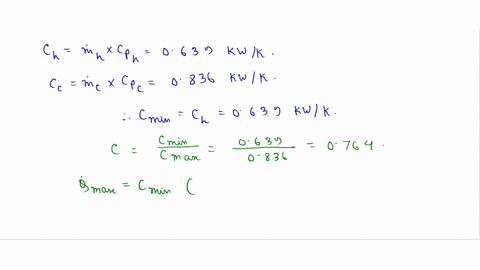 C_h = ṁ_h × C_{p_h} = 0.639 KW/K.
C_c = ṁ_c × C_{p_c} = 0.836 KW/K.
∴ C_min = C_h = 0.639 KW/K.
C = C_min / C_max = 0.639 / 0.836 = 0.764.
Q̇_max = C_min (